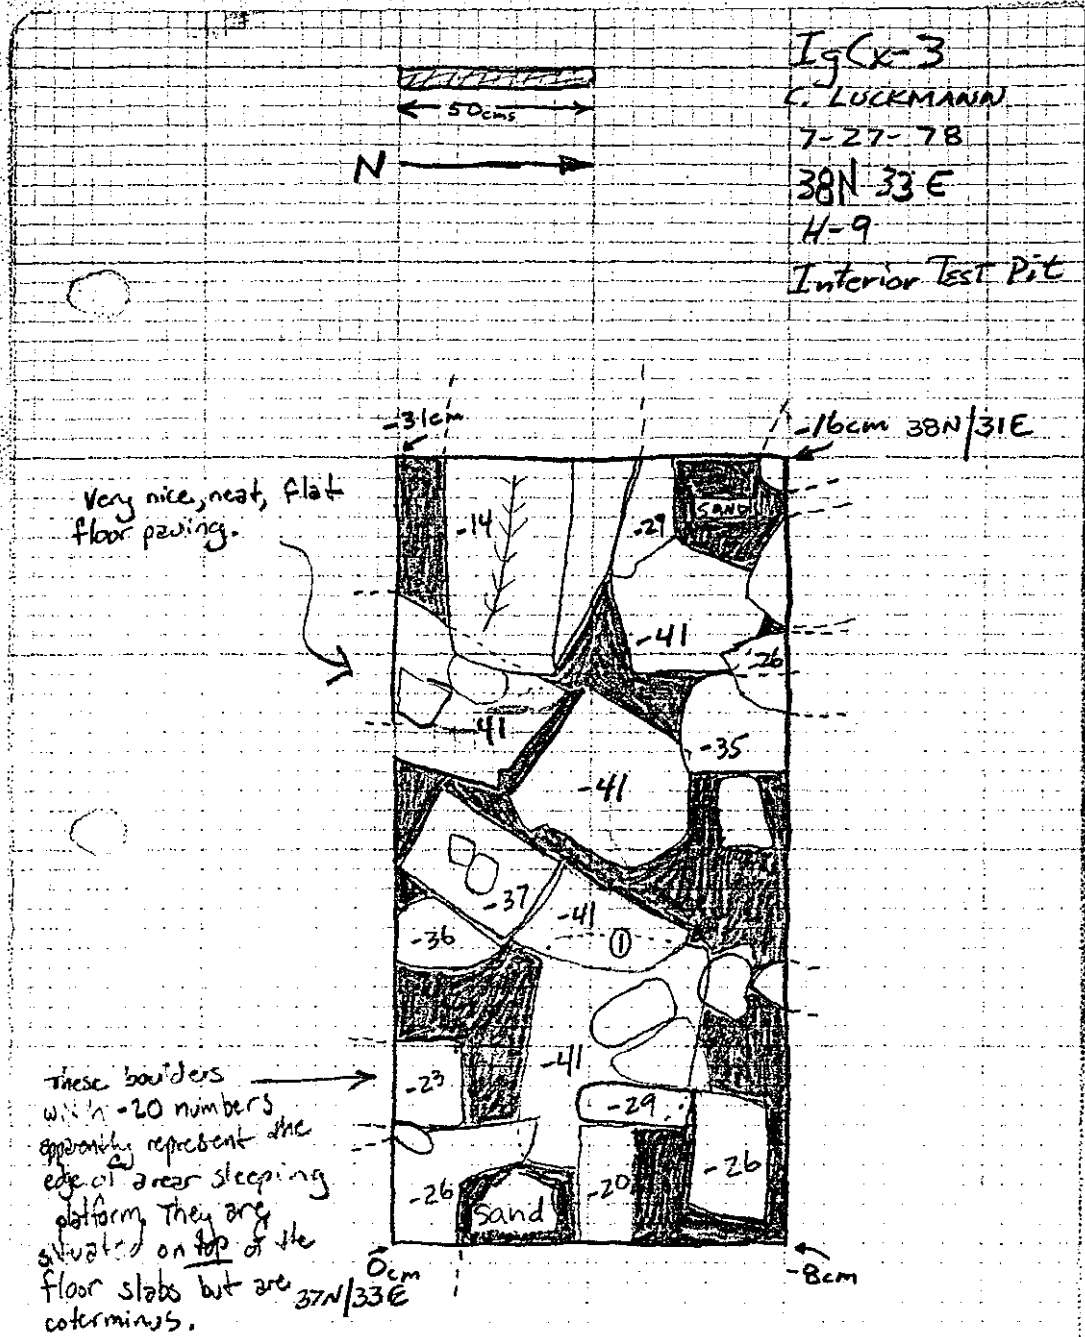 IgCx-3
C. LUCKMANN
7-27-78
38N 33E
H-9
Interior Test Pit
50cms
N
-31cm
-16cm 38N/31E
Very nice, neat, flat
floor paving.
-14
-29
SAND
-41
-26
-41
-35
-41
-37
-41
①
-36
-41
-23
-29
-26
-20
-26
Sand
These boulders
with -20 numbers
apparently represent the
edge of a rear sleeping
platform. They are
situated on top of the
floor slabs but are
coterminus.
0cm
37N/33E
-8cm